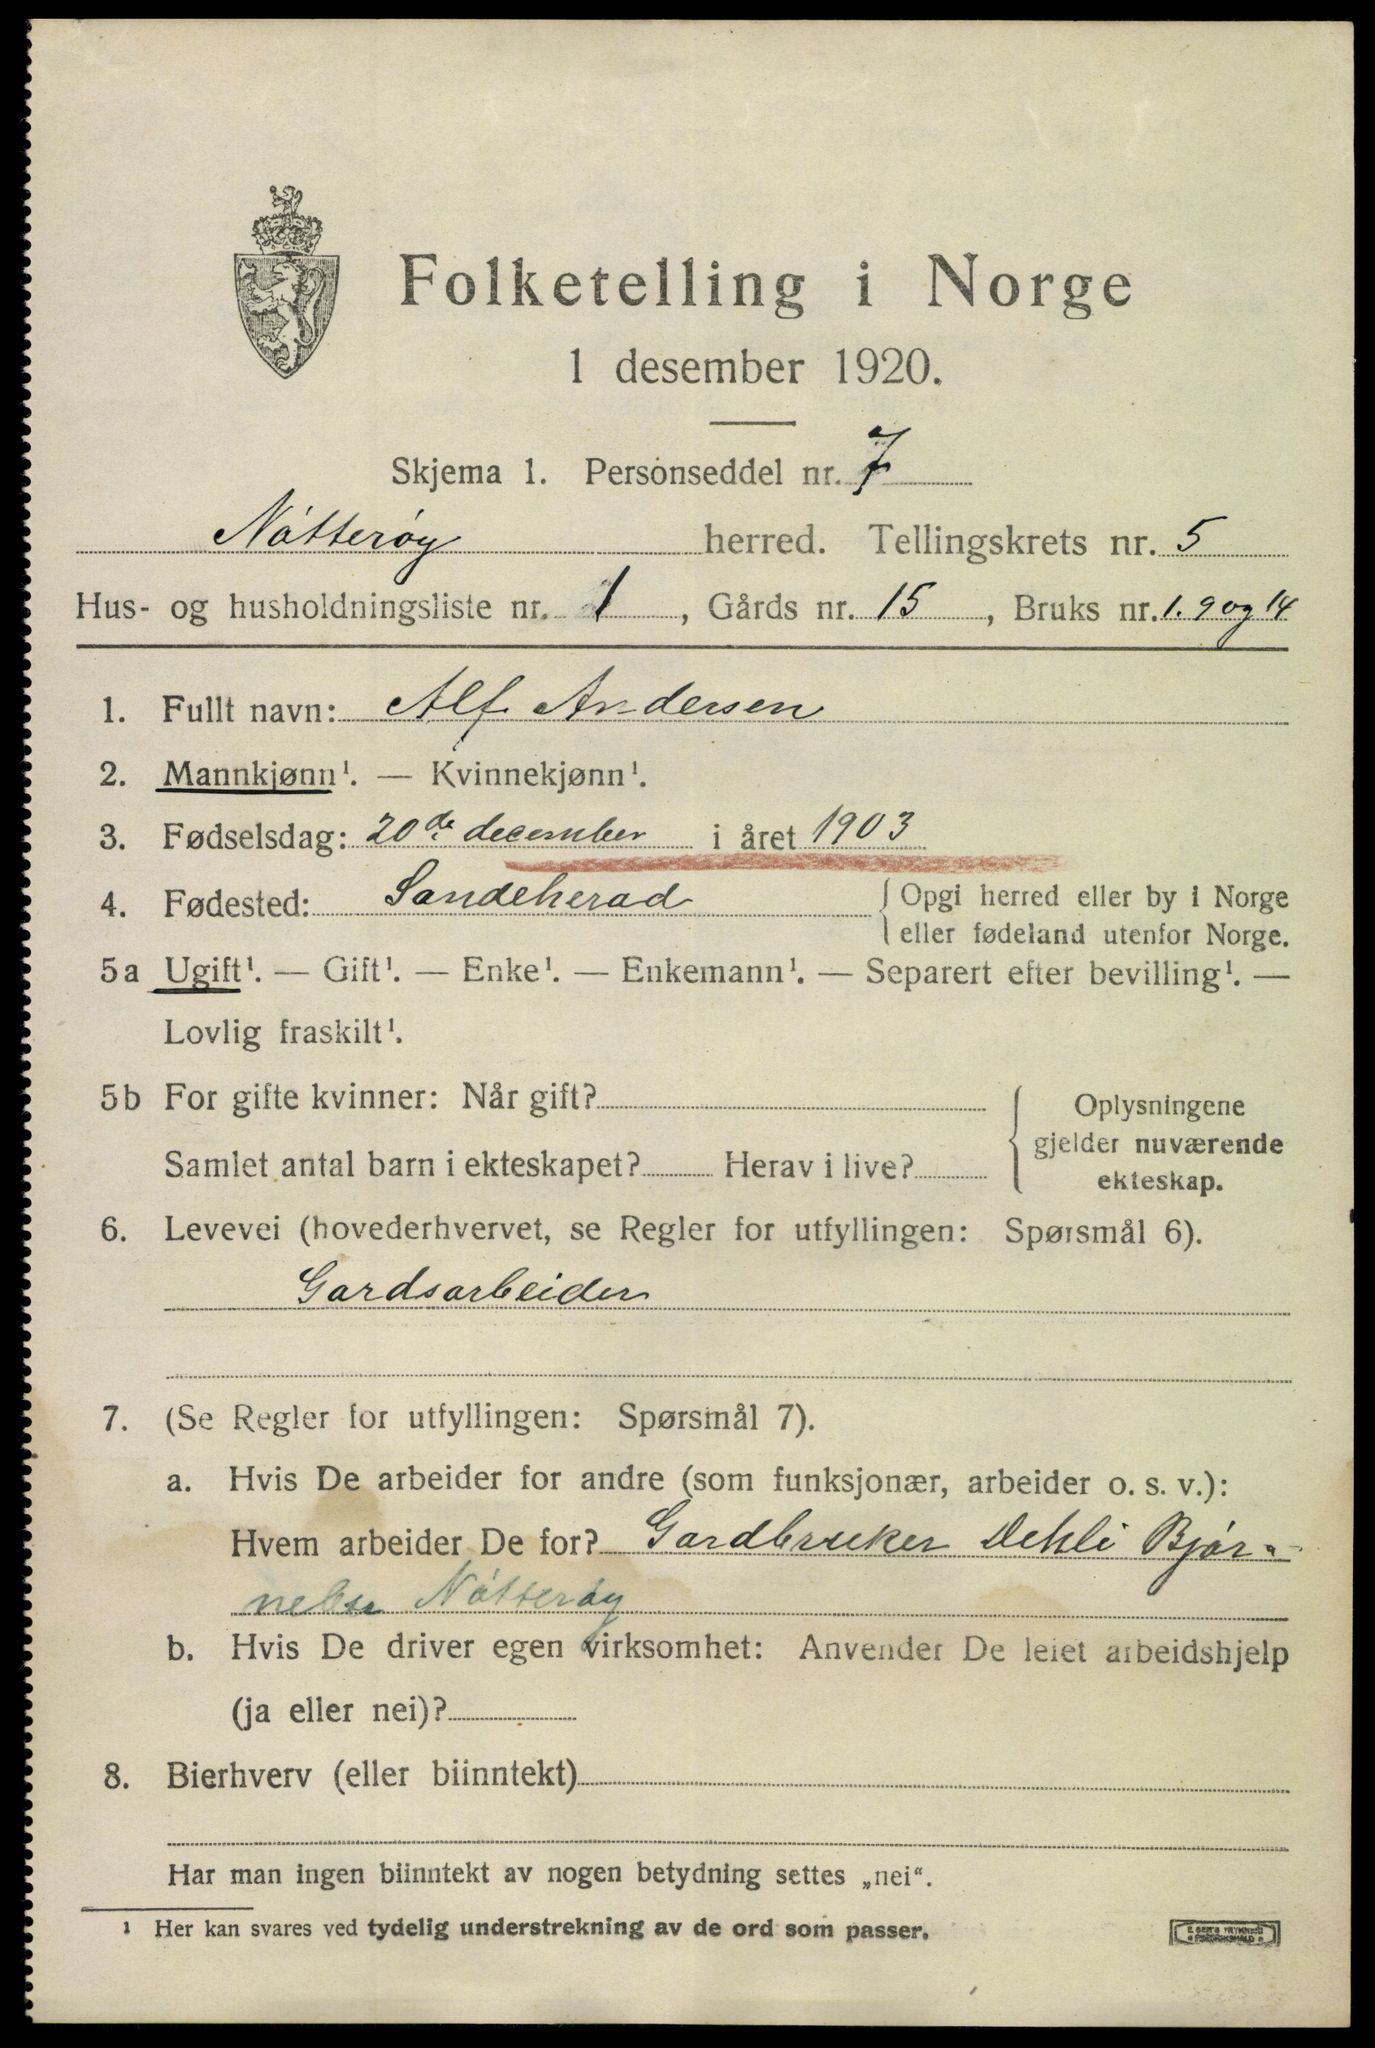 Folketelling i Norge
1 desember 1920.
Skjema 1. Personseddel nr. 7
Nøtterøy herred. Tellingskrets nr. 5
Hus- og husholdningsliste nr. 1, Gårds nr. 15, Bruks nr. 1. 9 og 14
1. Fullt navn: Alf Andersen
2. Mannkjønn¹. — Kvinnekjønn¹.
3. Fødselsdag: 20de december i året 1903
4. Fødested: Sandeherad { Opgi herred eller by i Norge
eller fødeland utenfor Norge.
5a Ugift¹. — Gift¹. — Enke¹. — Enkemann¹. — Separert efter bevilling¹. —
Lovlig fraskilt¹.
5b For gifte kvinner: Når gift? { Oplysningene
gjelder nuværende
Samlet antal barn i ekteskapet? Herav i live?
ekteskap.
6. Levevei (hovederhvervet, se Regler for utfyllingen: Spørsmål 6).
Gardsarbeider
7. (Se Regler for utfyllingen: Spørsmål 7).
a. Hvis De arbeider for andre (som funksjonær, arbeider o. s. v.):
Hvem arbeider De for? Gardbruker Dehli Bjør-
nebu Nøtterøy
b. Hvis De driver egen virksomhet: Anvender De leiet arbeidshjelp
(ja eller nei)?
8. Bierhverv (eller biinntekt)
Har man ingen biinntekt av nogen betydning settes „nei“.
¹ Her kan svares ved tydelig understrekning av de ord som passer.